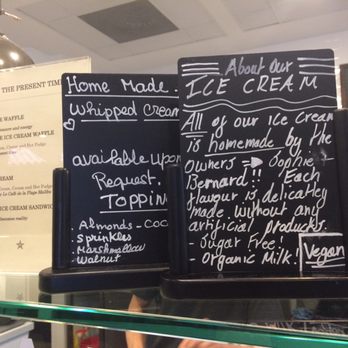 THE PRESENT TIME
WAFFLE
ICE CREAM WAFFLE
ICE CREAM SANDWICH
Home Made
Whipped Cream
available upon
Request.
TOPPIN
. Almonds - Coc
. Sprinkles
. Marshmallow
. Walnut
About Our
ICE CREAM
All of our Ice Cream
is homemade by the
owners => Sophie
Bernard!! Each
flavour is delicatly
made without any
artificial products.
- Sugar Free!
- Organic Milk!
Vegan